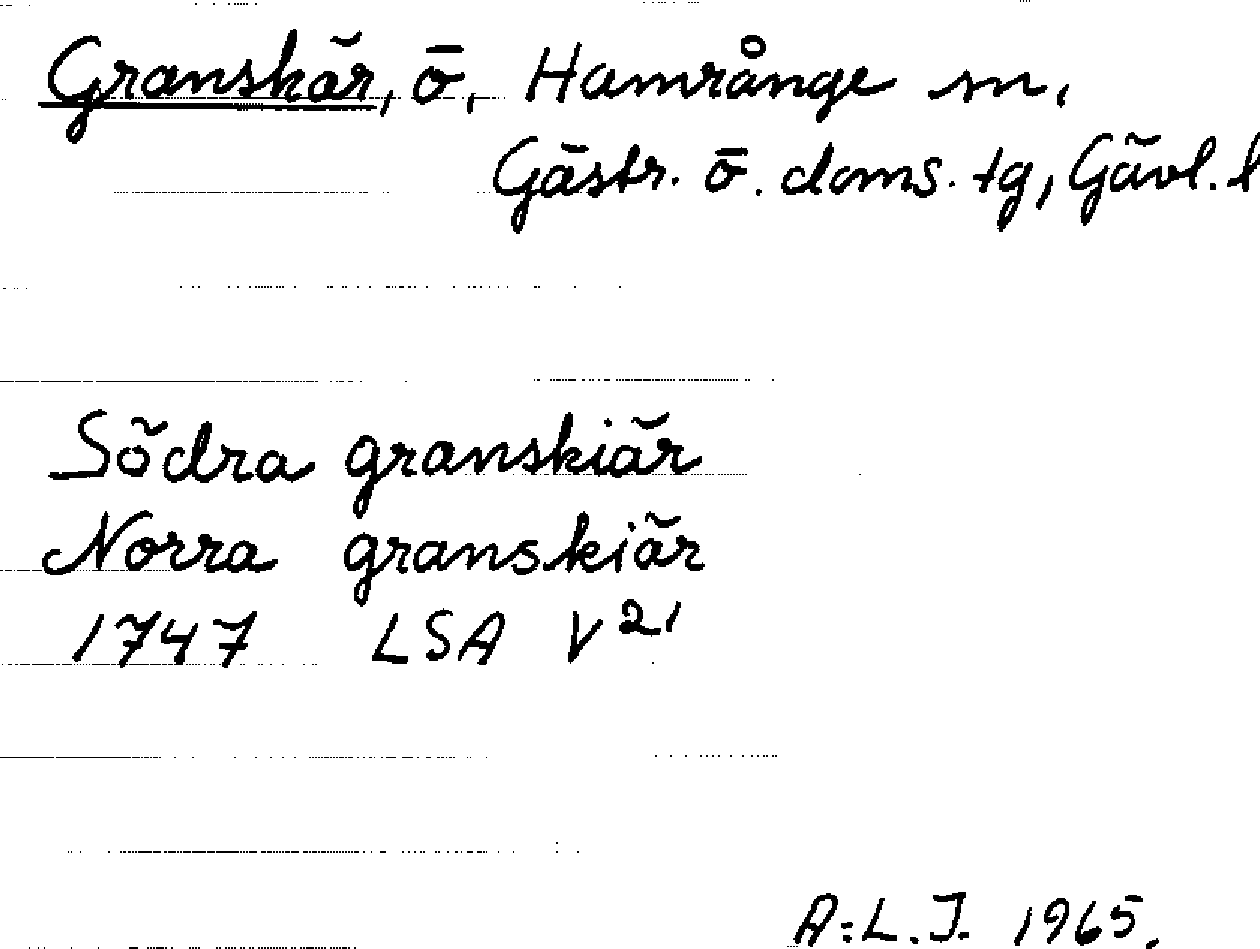 Granskär, ö, Hamrånge sn,
Gästr. ö. doms. tg, Gävl. l
Södra granskiär
Norra granskiär
1747 LSA V²¹
A:L.J. 1965.